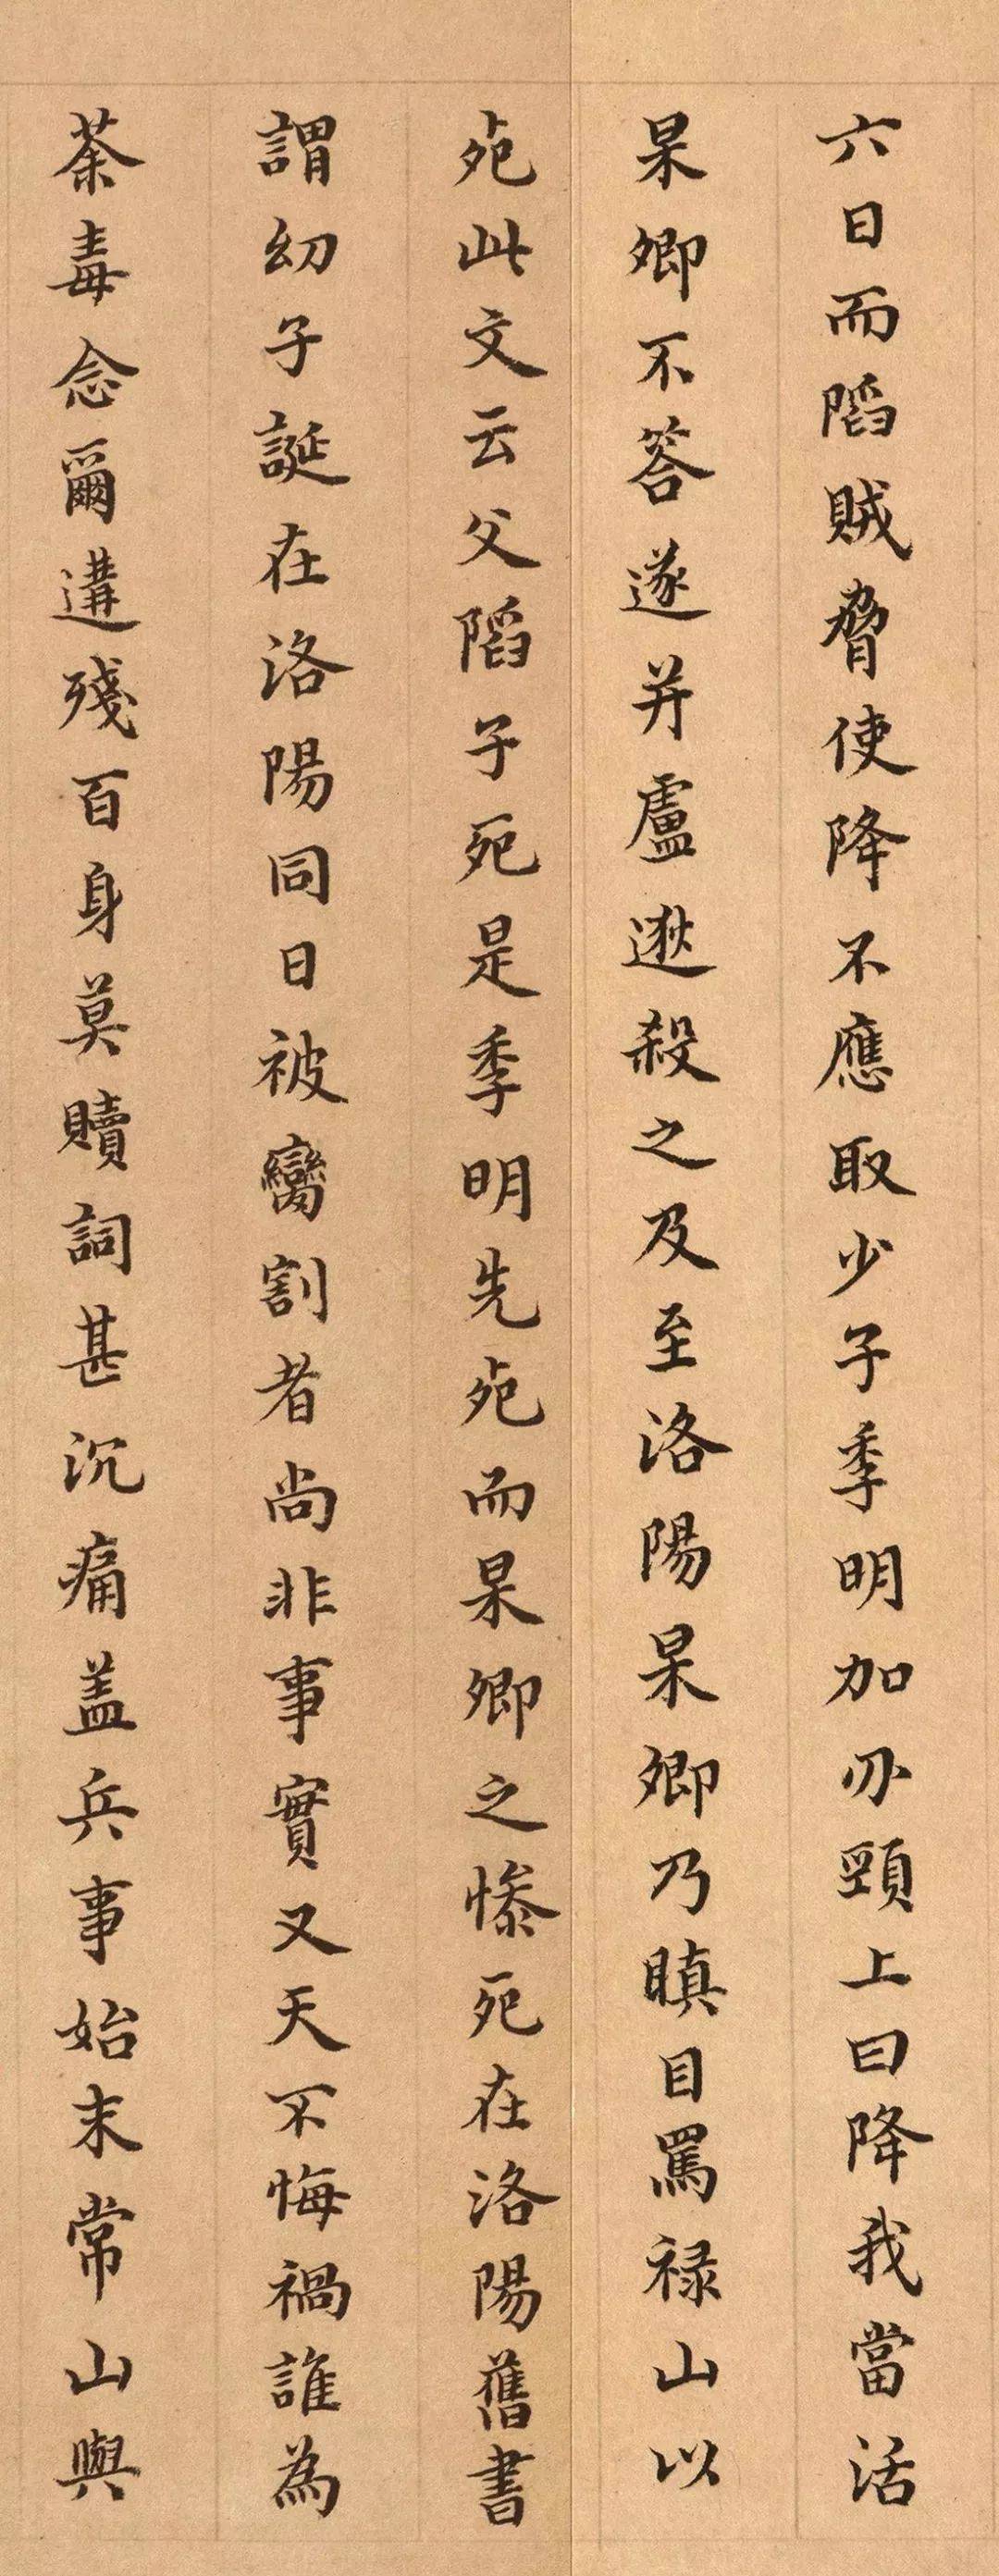 六日而陷賊脅使降不應取少子季明加刃頸上曰降我當活
杲卿不答遂并盧逖殺之及至洛陽杲卿乃瞋目罵祿山以
死此文云父陷子死是季明先死而杲卿之慘死在洛陽舊書
謂幼子誕在洛陽同日被臠割者尚非事實又天不悔禍誰為
荼毒念爾遘殘百身莫贖詞甚沉痛盖兵事始末常山與